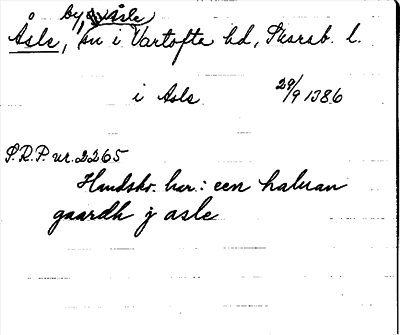 by, (Åsle)
Åsle, sn i Vartofta hd, Skarab. l.
i Asle 29/9 1386
S.R.P. nr. 2265
Handskr. har: een haluan
gaardh j asle